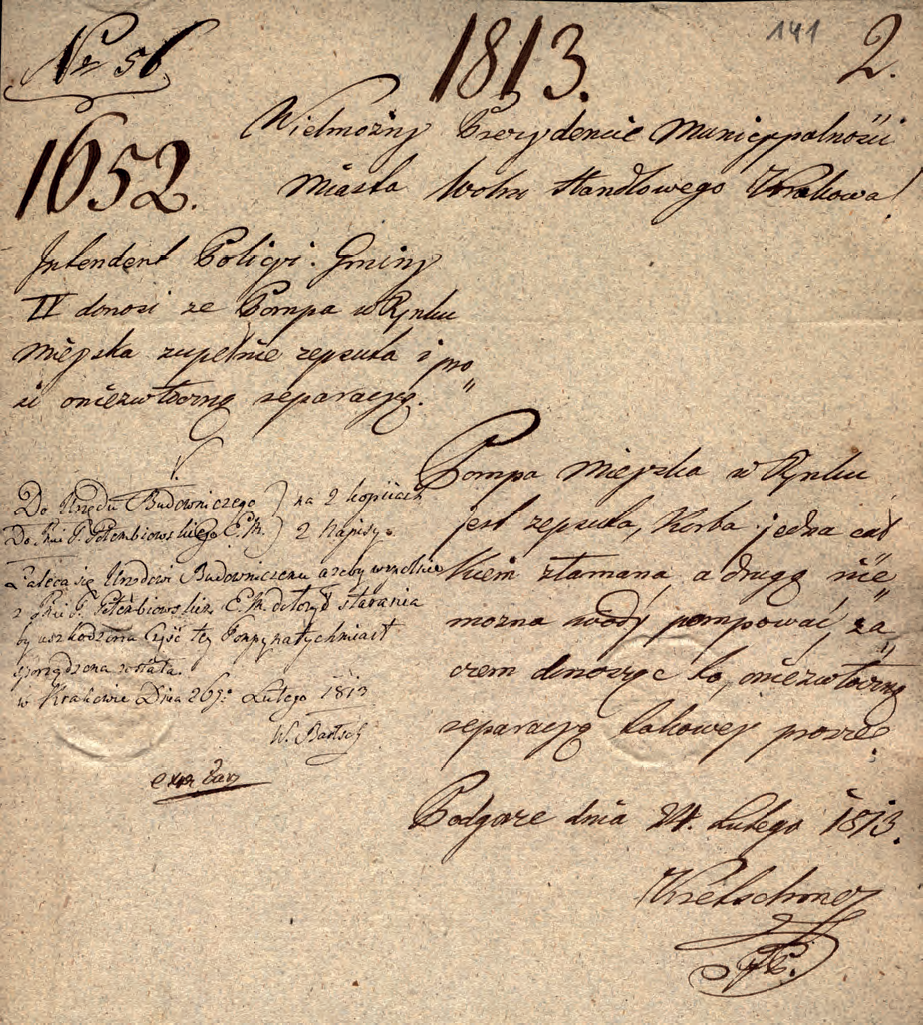 Nro 56
1813.
141
2.
1652.
Wielmożny Prezydencie Municypalności
Miasta Wolno Handlowego Krakowa!
Intendent Policyi Gminy
IV donosi ze Pompa w Rynku
Mieyska zupełnie zepsuta i pro
si oniezwłoczną reparacyą.
Do Urzędu Budowniczego
Do Pni P. E. M.
na 2 kopiiach
2 Napisy.
Zaleca się Urzędowi Budowniczemu azeby wspolnie
z Pni P. E. M. dołozyć starania
by uszkodzona Część tey Pompy natychmiast
sporządzona została.
w Krakowie Dnia 26go Lutego 1813
W. Bartsch
Pompa Mieyska w Rynku
jest zepsuta, Korba jedna cał
kiem złamana, a drugą nie
mozna wody pompować, za
czem donosząc to, oniezwłoczną
reparacyą takowey prosze.
Podgorze dnia 24. Lutego 1813.
Kretschmer